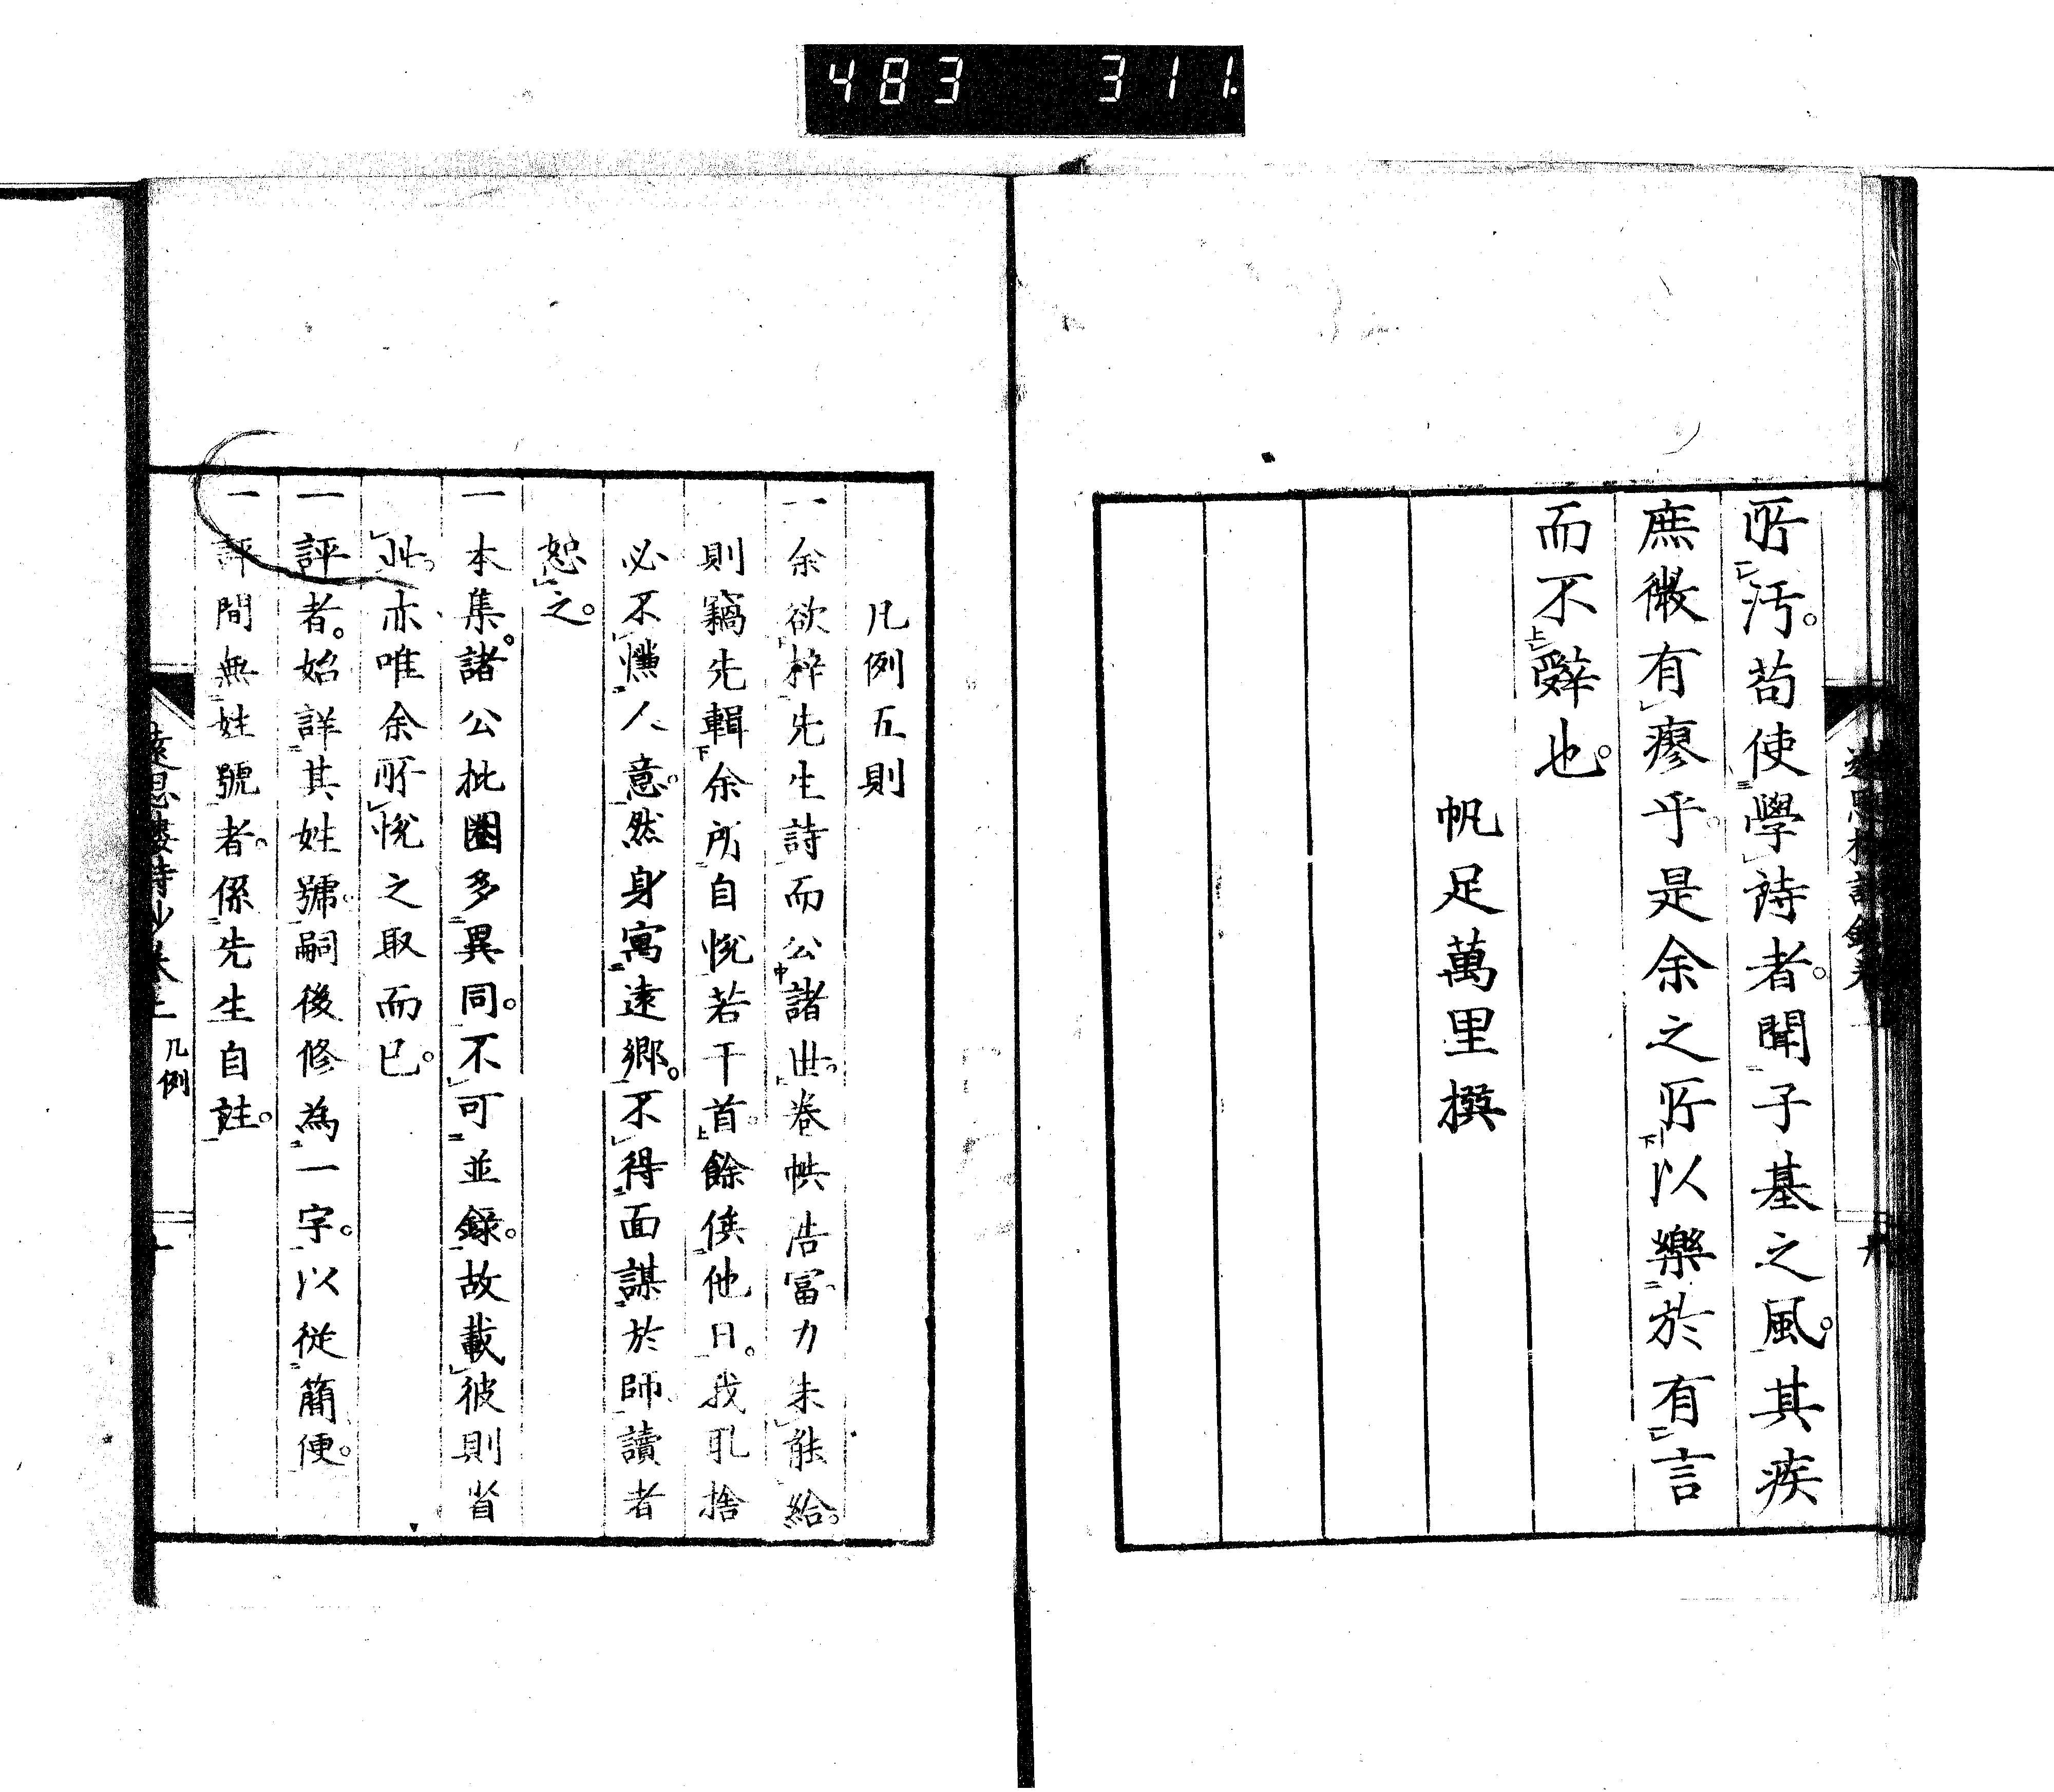 483 311
所汚。苟使學詩者。聞子基之風。其疾
庶微有瘳乎。是余之所以樂於有言
而不辭也。
帆足萬里撰
凡例五則
一余欲梓先生詩而公諸世。卷帙浩富。力未能給。
則竊先輯余所自悅若干首。餘俟他日。我取捨
必不愜人意。然身寓遠鄉。不得面謀於師。讀者
恕之。
一本集。諸公批圈多異同。不可並錄。故載彼則省
此。亦唯余所悅之取而已。
一評者。始詳其姓號。嗣後修為一字。以從簡便。
一評間無姓號者。係先生自註。
遠思樓詩鈔卷上 凡例 一